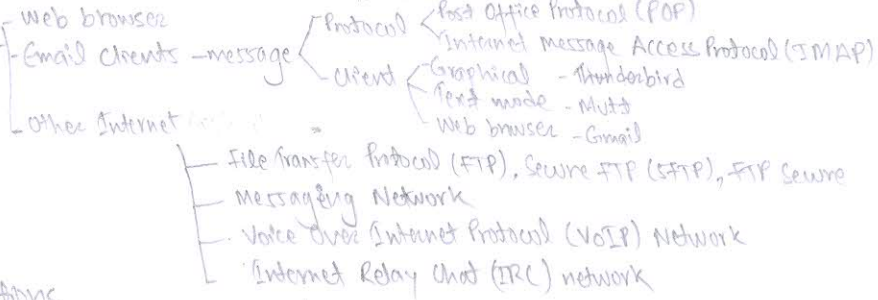 Web browser
Email clients - message
Protocol
Post Office Protocol (POP)
Internet Message Access Protocol (IMAP)
Client
Graphical - Thunderbird
Text mode - Mutt
Web browser - Gmail
Other Internet
File Transfer Protocol (FTP), Secure FTP (SFTP), FTP Secure
Messaging Network
Voice Over Internet Protocol (VoIP) Network
Internet Relay Chat (IRC) network